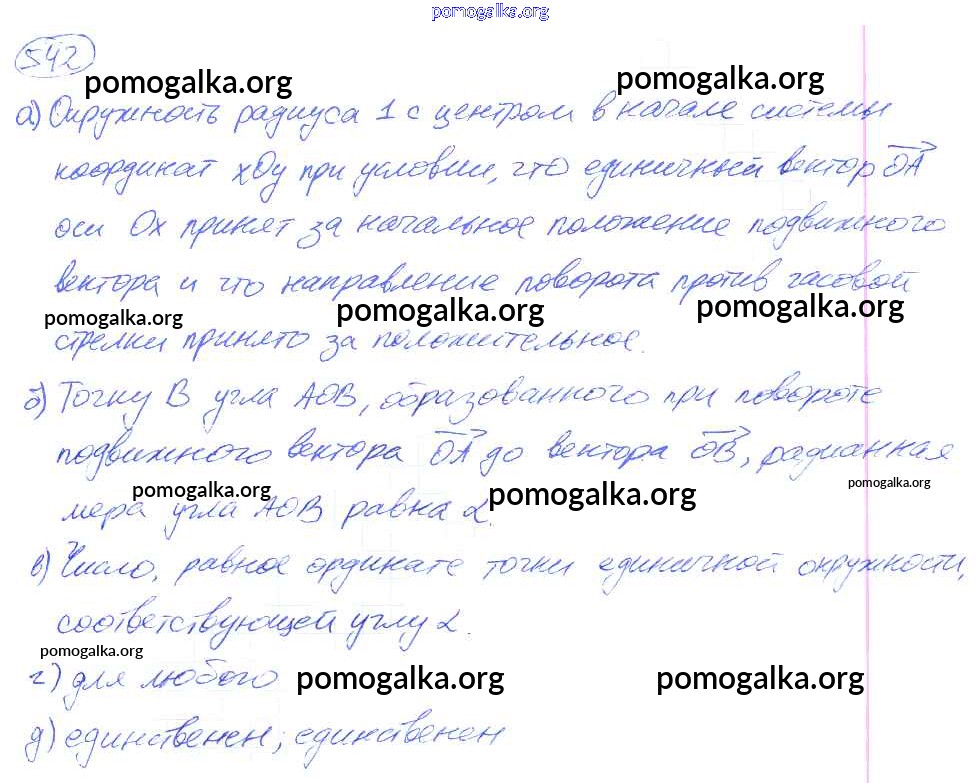 pomogalka.org
542
pomogalka.org pomogalka.org
а) Окружность радиуса 1 с центром в начале системы
координат xOy при условии, что единичный вектор OA
оси Ox принят за начальное положение подвижного
вектора и что направление поворота против часовой
pomogalka.org pomogalka.org pomogalka.org
стрелки принято за положительное.
б) Точку B угла AOB, образованного при повороте
подвижного вектора OA до вектора OB, радианная
pomogalka.org pomogalka.org pomogalka.org
мера угла AOB равна α.
в) Число, равное ординате точки единичной окружности,
соответствующей углу α.
pomogalka.org
г) для любого pomogalka.org pomogalka.org
д) единственен; единственен